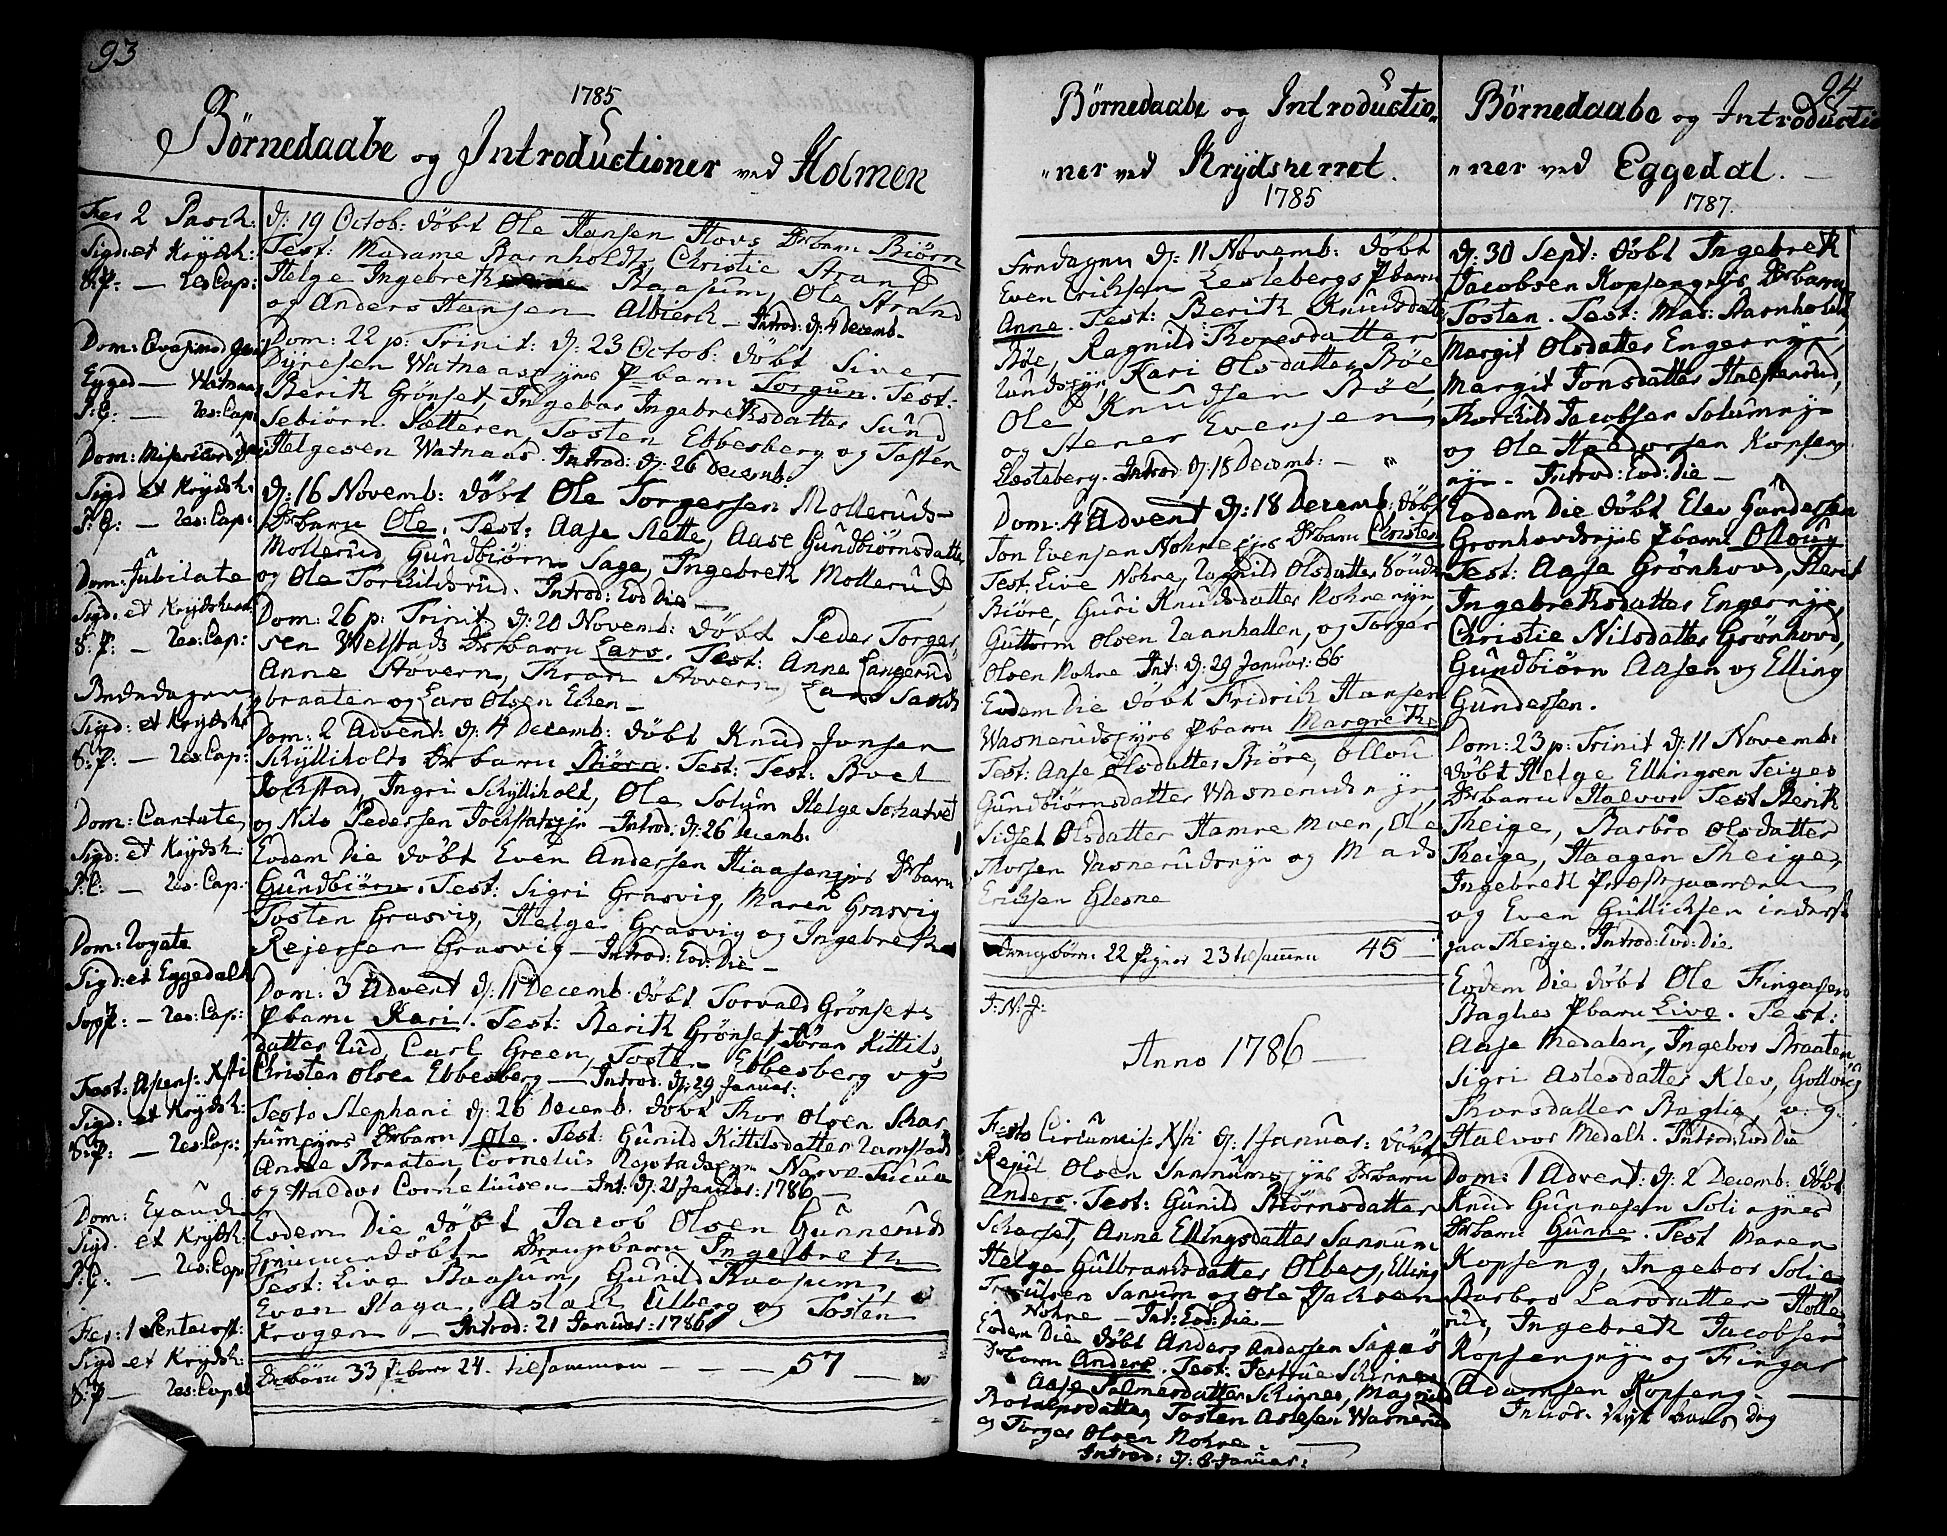 93
1785
Børnedaabe og Introductioner ved Holmen
Fer 2 Pasch:
Sigd: et Krydsh:
S:P: — Res:Cap:
Dom: Qvasimod gen:
Egged — Watnaas
P:C: — Res:Cap:
Dom: Misericord Dom
Sigd et Krydsh:
P:C: — Res:Cap:
Dom: Jubilate
Sigd: et Krydsher
S:P: — Res:Cap:
Bededagen
Sigd: et Krydsh:
S:P: — Res:Cap:
Dom: Cantate
Sigd: et Krydsh:
P:C: — Res:Cap:
Dom: Rogate
Sigd: et Eggedalh
— Res:Cap:
Fest: Asens: Xsti
Sigd: et Krydsh:
S:P: — Res:Cap:
Dom: Exaudi
Sigd. et Krydsh:
P:C: — Res:Cap
Fer: 1 Pentecost:
Sigd et Krydsh:
S:P — Res:Cap
d: 19 Octob: døbt Ole Hansen Hovs Drbarn Biørn
Test: Madame Barnholdt, Christie Strand
Helge Ingebrek Raasum, Ole Strand
og Anders Hansen Albierk — Introd: d: 4 Decemb.
Dom: 22 p: Trinit: d: 23 Octob: døbt Siver
Dÿresen Watnaasejes Pbarn Torgun. Test:
Berith Grønset, Ingebor Ingebrethsdatter Sund
Sebiørn Sætteren Tosten Ebbesberg og Tosten
Helgesen Watnaas. Introd: d: 26 Decemb.
d: 16 Novemb: døbt Ole Torgersen Molleruds
Drbarn Ole. Test: Aase Slette, Aase Gundbiørnsdatter
Mollerud, Gundbiørn Sage, Ingebreth Mollerud
og Ole Torkildsrud. Introd: Eod Die —
Dom: 26 p: Trinit d: 20 Novemb: døbt Peder Torger
sen Welstads Drbarn Lars. Test: Anne Langerud
Anne Støvern, Thron Støvern, Lars Sands
braaten og Lars Olsen Eken —
Dom: 2 Advent: d: 4 Decemb: døbt Knud Jonsen
Schÿlliholts Drbarn Biørn. Test: Test: Boel
Jochstad, Ingri Schÿlliholt, Ole Solum Helge Schatvet
og Nils Pedersen Jochstadeje — Introd: d: 26 Decemb.
Eodem Die døbt Even Andersen Hiaasenejes Drbarn
Gundbiørn. Test: Sigri Grasvig, Maren Grasvig
Tosten Grasvig, Helge Grasvig og Ingebreth
Rejersen Grasvig — Introd: Eod: Die —
Dom: 3 Advent d: 11 Decemb. døbt Torvald Grønsets
Pbarn Kari. Test: Berith Grønset, Jøran Kittils
datter Rud, Carl Green, Tosten Ebbesberg og
Christen Olsen Ebbesberg — Introd. d: 29 Januar.
Festo Stephani d: 26 Decemb. døbt Thor Olsen Skar
sumejes Drbarn Ole. Test: Gunild Kittilsdatter Ramstad
Anne Braaten, Cornelius Narve
og Haldor Corneliusen — Int: d: 21 Januar: 1786 —
Eodem Die døbt Jacob Olsen Gunneruds
Ingelbreth
Test: Live Raasum, Gunild Raasum,
Even Haga, Aslach Ulberg og Tosten
Krogen — Introd: 21 Januar: 1786
Drebørn 33 Pibørn 24. tilsammen — — — 57 —
Børnedaabe og Introductio„
„ner ved Krydsherret.
1785
Fredagen d: 11 Novemb: døbt
Even Eriksen Lestebergs Pbarn
Anne. Test: Berith Knudsdatter
Bøe, Ragnild Thoresdatter
Lundseje, Kari Olsdatter Bøe
Ole Knudsen Bøe,
og Stener Evensen
Lestsberg. Introd: d: 18 Decemb: — „
Dom: 4 Advent d: 18 Decemb: døbt
Jon Evensen Nohre ejes Drbarn Christen
Test: Live Nohre, Ragnild Olsdatter
Biøre, Guri Knudsdatter Nohreeje,
Guttorm Olsen Raanhallen, og Torger
Olsen Nohre Int: d: 29 Januar: 86
Eodem Die døbt Fridrich Hansen
Wasnerudsejes Pbarn Margrethe
Test: Aase Olsdatter Biøre, Ollou
Gundbiørnsdatter Wasnerudeje,
Sidsel Olsdatter Hamre Moen, Ole
Thorsen Vasnerudseje og Mads
Eriksen Glesne
Drengebørn: 22 Piger 23 tilsammen 45 —
I: N: J:
Anno 1786 —
Festo Circumcis: Xsti d: 1 Januar: døbt
Rejul Olsen Sannumsejes Drbarn
Anders. Test: Gunild Biørnsdatter
Scharset, Anne Ellingsdatter Sannum
Helge Gulbrandsdatter Olberg, Elling
Truulsen Sanum og Ole Isachsen
Nohre — Int: Eod: Die —
Eodem Die døbt Anders Andersen Sagnes
Drbarn Anders. Test: Jertrue Schinnes
Aase Salmersdatter Schinnes, Magnild
Rotalpsdatter, Tosten Aslesen Wasnerud
og Torger Olsen Nohre.
Introd: d: 8 Januar:
94
Børnedaabe og Introductio
„ner ved Eggedal. —
1787.
d: 30 Sept: døbt Ingebreth
Jacobsen Kopsengejes Drbarn
Tosten. Test: Mad: Barnholdt,
Margit Olsdatter Engereje,
Margit Jonsdatter Halstenrud,
Thorchild Jacobsen Solumeje
og Ole Haldorsen Kopseng
eje — Introd: Eod: Die —
Eodem Die døbt Elev Gundersen
Grønhovdsejes Pbarn Olloug
Test: Aase Grønhovd, Berit
Ingebrethsdatter Engereje,
Christie Nilsdatter Grønhovd,
Gundbiørn Aasen og Elling
Gundersen.
Dom: 23 p: Trinit d: 11 Novemb:
døbt Helge Ellingsen Teiges
Drbarn Halvor Test Berith
Theige, Barbro Olsdatter
Theige, Haagen Theige,
Ingebreth Præstegaarden
og Even Gullichsen inderst
paa Theige. Introd: Eod: Die
Eodem Die døbt Ole Fingarsen
Baglies Pbarn Live. Test:
Aase Medalen, Ingebor Braaten
Sigri Aslesdatter Klev, Gollevig
Thorsdatter Baglie, og
Halvor Medalh. Introd: Eod Die
Dom: 1 Advent: d: 2 Decemb: døbt
Knud Gunnesen Soliejes
Drbarn Gunne. Test Maren
Kopseng, Ingebor Solie
Barbro Larsdatter Holle
rud, Ingebreth Jacobsen
Kopsengeje og Fingar
Adamsen Kopseng. —
Introd. Nyt Aars dag